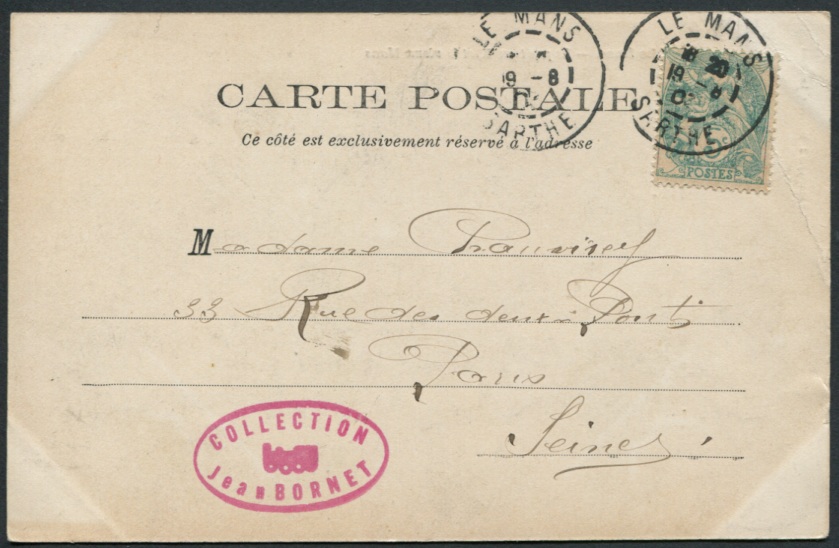 LE MANS
19 -8
SARTHE
LE MANS
18 20
19 -8
SARTHE
5
POSTES
CARTE POSTALE
Ce côté est exclusivement réservé à l'adresse
Madame
33 Rue des deux-Ponts
Paris
Seine
COLLECTION
Jean BORNET